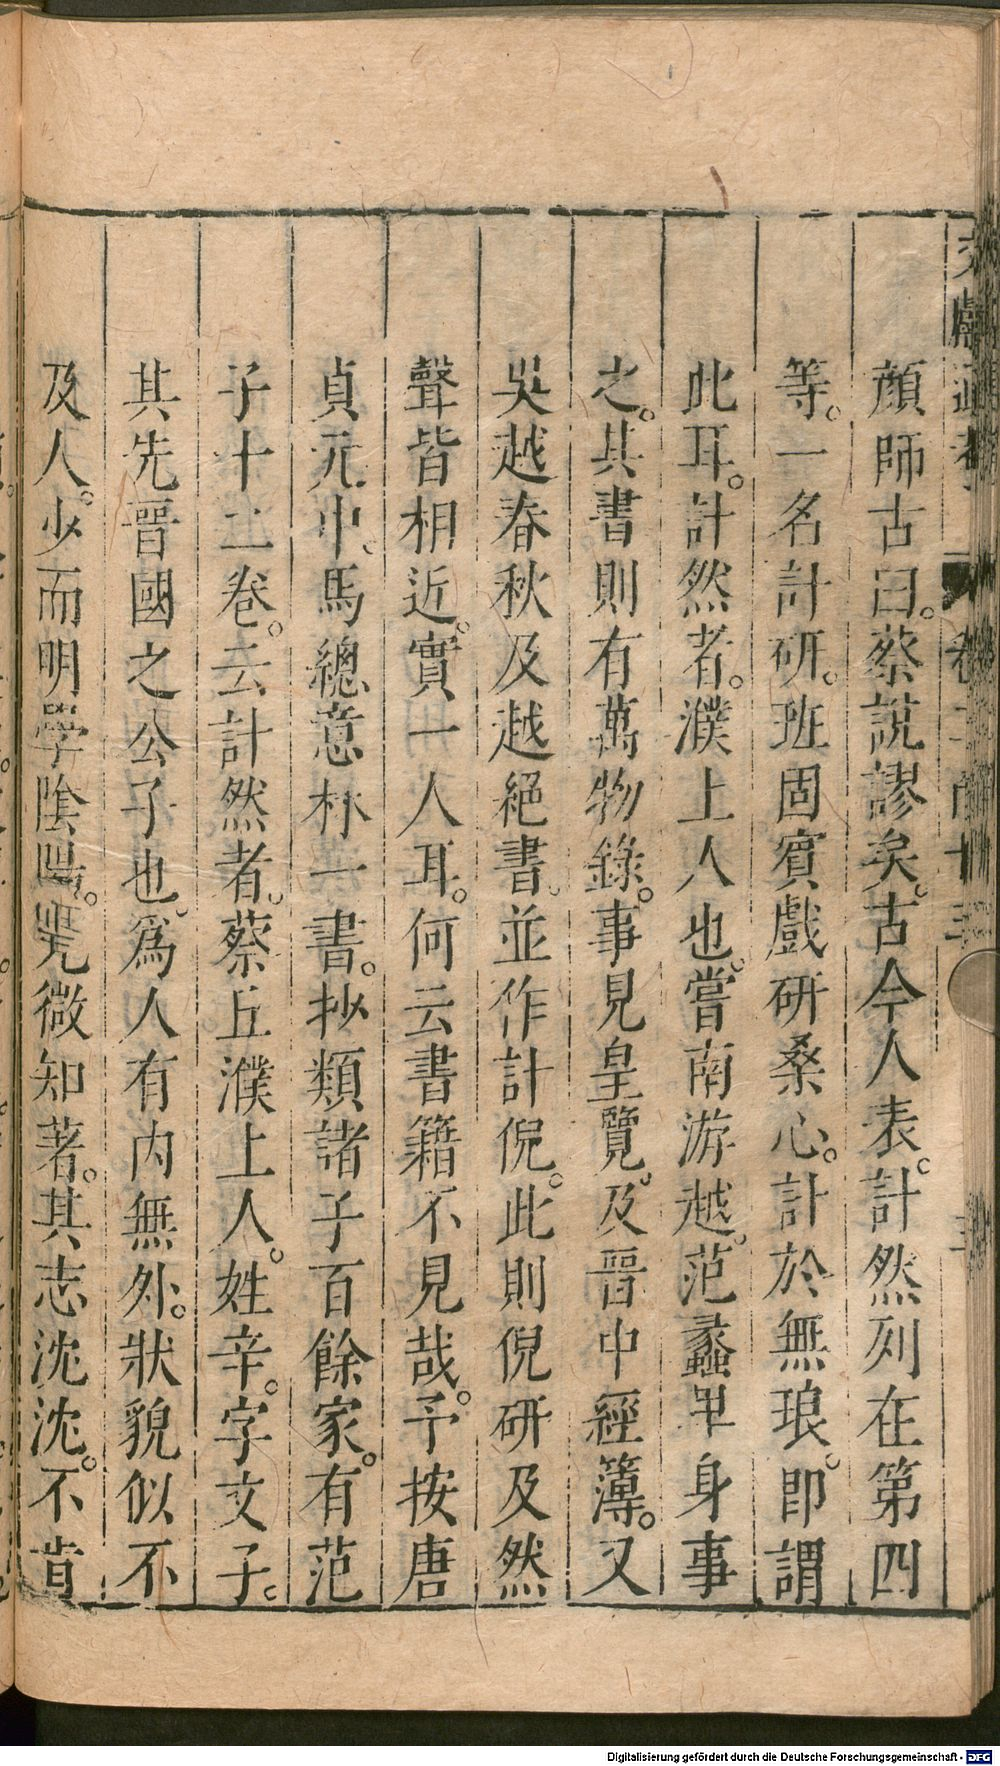 文獻通考 卷二百十三
顔師古曰。蔡說謬矣。古今人表。計然列在第四
等。一名計研。班固賓戲研桑心。計於無琅。即謂
此耳。計然者。濮上人也。嘗南游越。范蠡卑身事
之。其書則有萬物錄。事見皇覽。及晉中經簿。又
吳越春秋及越絕書。並作計倪。此則倪研及然
聲皆相近。實一人耳。何云書籍不見哉。予按唐
貞元中。馬總意林一書。抄類諸子百餘家。有范
子十二卷。云計然者。蔡丘濮上人。姓辛。字文子。
其先晉國之公子也。爲人有内無外。狀貌似不
及人。少而明學陰陽。見微知著。其志沈沈。不肯
Digitalisierung gefördert durch die Deutsche Forschungsgemeinschaft - DFG